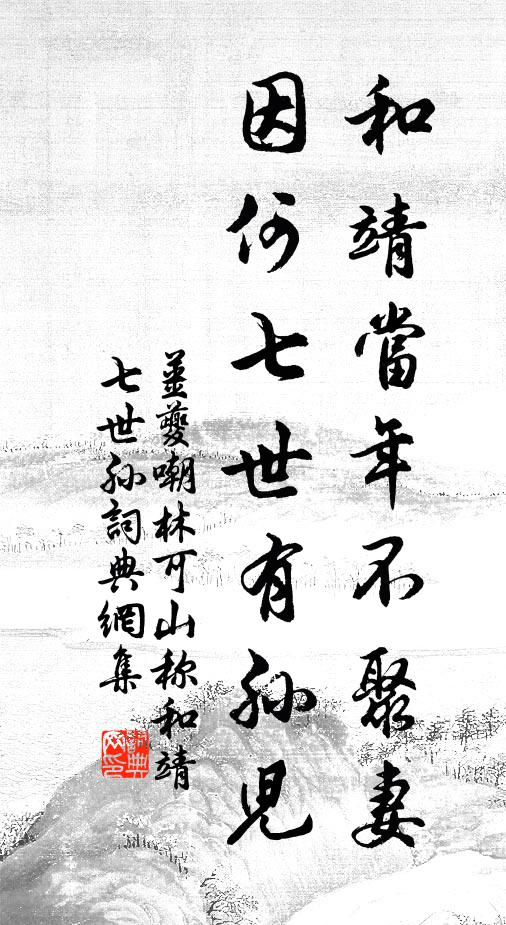 和靖當年不聚妻
因何七世有孫児
姜夔嘲林可山称和靖
七世孫詞典網集